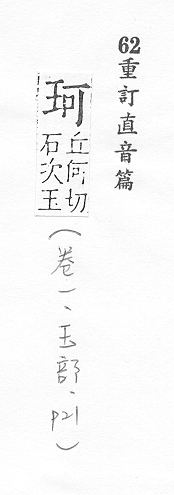 62重訂直音篇
珂丘何切
石次玉
(卷一、玉部、p21)